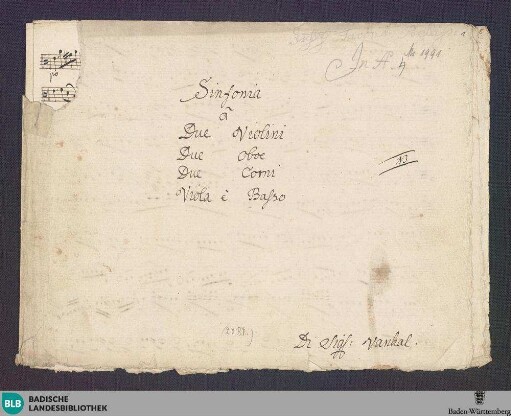 In A. 4
Sinfonia
a
Due Violini
Due Oboe
Due Corni
Viola è Basso
Del Sigr: Vanhal.
BLB BADISCHE
LANDESBIBLIOTHEK
Baden-Württemberg